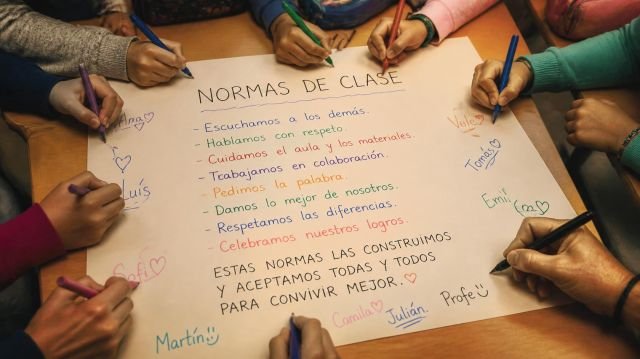 NORMAS DE CLASE
- Escuchamos a los demás.
- Hablamos con respeto.
- Cuidamos el aula y los materiales.
- Trabajamos en colaboración.
- Pedimos la palabra.
- Damos lo mejor de nosotros.
- Respetamos las diferencias.
- Celebramos nuestros logros.
ESTAS NORMAS LAS CONSTRUIMOS
Y ACEPTAMOS TODAS Y TODOS
PARA CONVIVIR MEJOR. ♡
Ana
Luís
Sofi
Martín
Camila
Julián.
Profe
Emil
Tomás